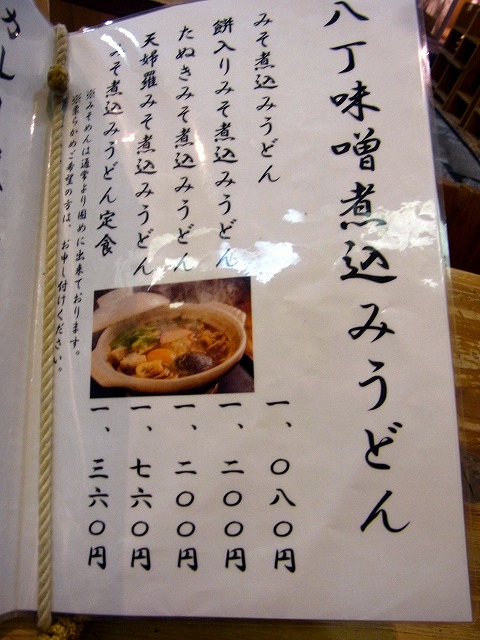 八丁味噌煮込みうどん
みそ煮込みうどん 一、〇八〇円
餅入りみそ煮込みうどん 一、二〇〇円
たぬきみそ煮込みうどん 一、二〇〇円
天婦羅みそ煮込みうどん 一、七六〇円
みそ煮込みうどん定食 一、三六〇円
※みそめんは通常より固めに出来ております。
※柔らかめご希望の方は、お申し付けください。